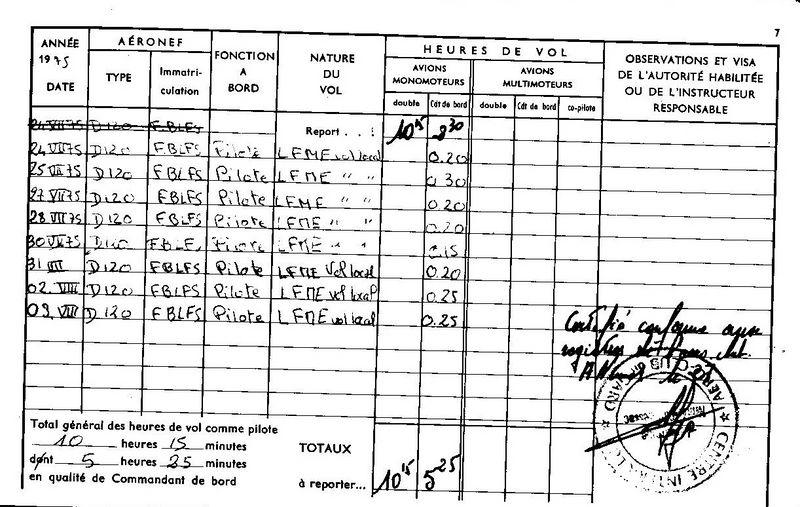 7
ANNÉE 1975 DATE
AÉRONEF
TYPE
Immatri-culation
FONCTION A BORD
NATURE DU VOL
HEURES DE VOL
AVIONS MONOMOTEURS
AVIONS MULTIMOTEURS
double Cdt de bord double Cdt de bord co-pilote
OBSERVATIONS ET VISA
DE L'AUTORITÉ HABILITÉE
OU DE L'INSTRUCTEUR
RESPONSABLE
24 VII 75 D120 F.BLFS Report . . . 10 15
24 VII 75 D120 F.BLFS Pilote LFME vol local 0.20
25 VII 75 D120 FBLFS Pilote LFME " " 0 30
27 VII 75 D120 FBLFS Pilote LFME " " 0.20
28 VII 75 D120 FBLFS Pilote LFME " " 0.20
30 VII 75 LFME " " 0.15
31 VII D120 FBLFS Pilote LFME Vol local 0.20
02. VIII D120 FBLFS Pilote LFME vol local 0.25
09. VIII D120 FBLFS Pilote LFME vol local 0.25
Certifié conforme aux
registres
Total général des heures de vol comme pilote
10 heures 15 minutes
dont 5 heures 25 minutes
en qualité de Commandant de bord
TOTAUX
à reporter... 10 15 5 25
AERO-CLUB DU GARD
CENTRE INTER